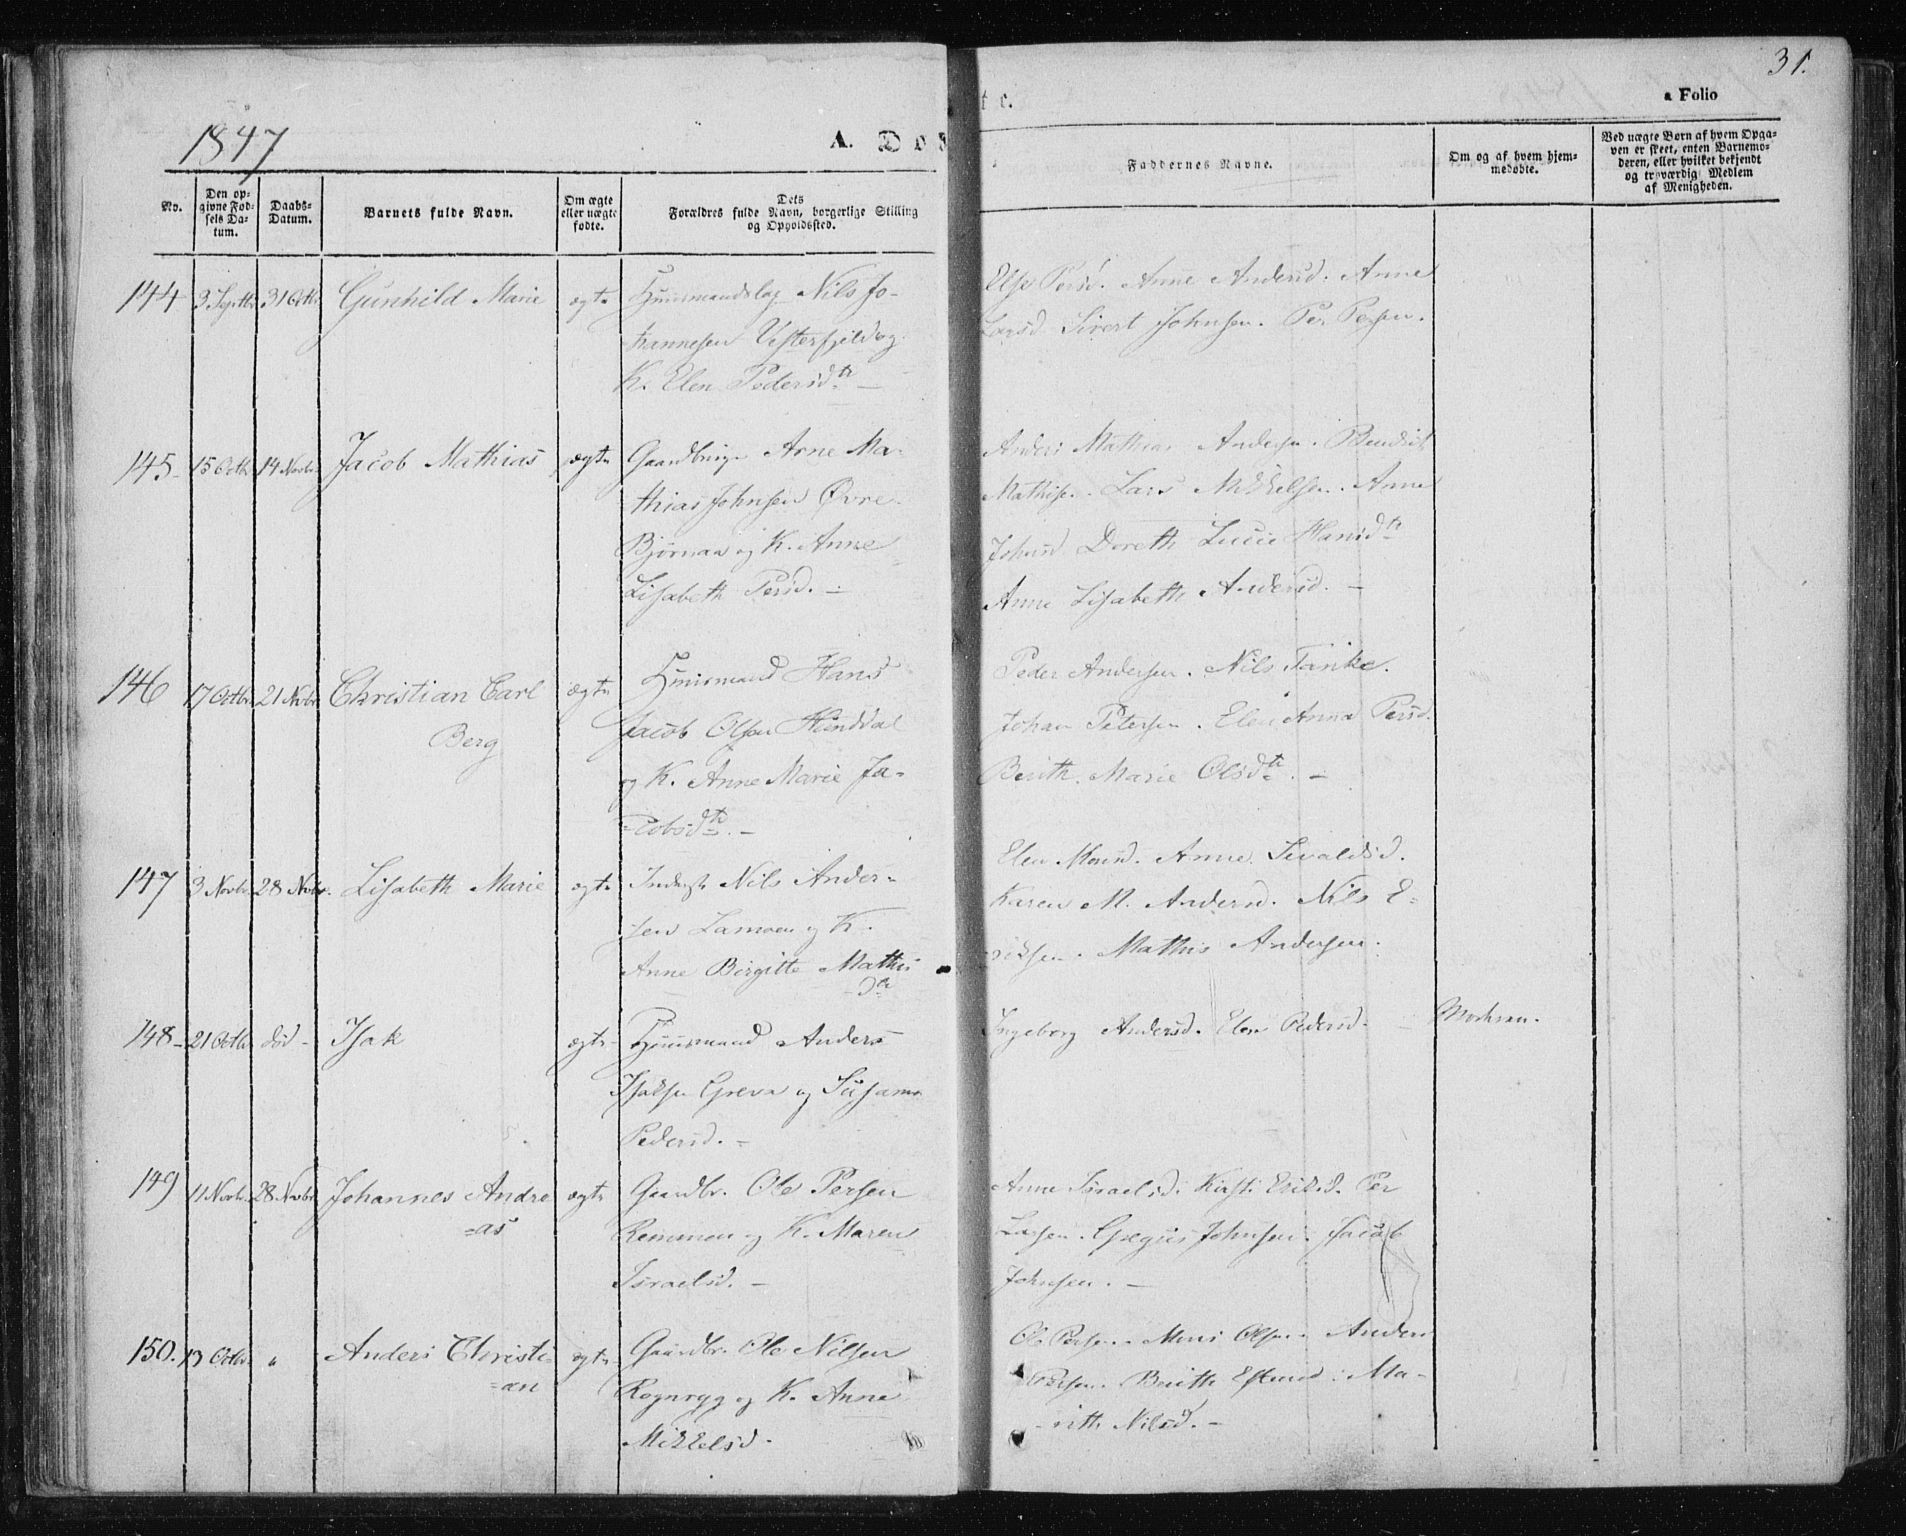 31.
a Folio
1847
A. Dob
t e.
No.
Den op-
givne Fød-
sels Da-
tum.
Daabs-
Datum.
Barnets fulde Navn.
Om ægte
eller uægte
fødte.
Dets
Forældres fulde Navn, borgerlige Stilling
og Opholdssted.
Faddernes Navne.
Om og af hvem hjem-
medøbte.
Ved uægte Børn af hvem Opga-
ven er skeet, enten Barnemo-
deren, eller hvilket bekjendt
og troværdig Medlem
af Menigheden.
144 3 Septbr 31 Octb Gunhild Marie ægte Huusmandslag Nils Jo-
hannesen Vesterfjeld og
K. Elen Pedersdtr —
Else Persd. Anne Andersd. Anne
Larsd. Sivert Johnsen. Per Persen.
145 15 Octb 14 Novbr Jacob Mathias ægte Gaardbruger Arne Ma-
thias Johnsen Øvre
Bjørnaa og K. Anne
Lisabeth Persd. —
Anders Mathias Andersen. Bendict
Mathisen. Lars Mikkelsen. Anne
Johnsd. Dorethe Lucie Hansdtr
Anne Lisabeth Andersd. —
146 17 Octbr 21 Novbr Christian Carl
Berg
ægte Huusmand Hans
Jacob Olsen Hunddal
og K. Anne Marie Ja-
=cobsdtr. —
Peder Andersen. Nils Tanke.
Johan Petersen. Elen Anna Persd.
Berith Marie Olsdtr. —
147 3 Novbr 28 Novbr. Lisabeth Marie ægte Inderst Nils Ander-
sen Lamoen og K.
Anne Birgitte Mathis
dtr
Elen Monsd. Anne Sivaldsd.
Karen M. Andersd. Nils E-
riksen. Mathis Andersen.
148 — 21 Octbr død — Isak ægte Huusmand Anders
Isaksen Greva og Susanna
Pedersd. —
Ingeborg Andersd. Elen Pedersd. — Modren.
149 11 Novbr. 28 Novbr Johannes Andre
=as
ægte Gaardbr. Ole Persen
Remmen og K. Maren
Israelsd. —
Anne Israelsd. Kirsti Eriksd. Per
Larsen. Gregus Johnsen. Jacob
Johnsen. —
150. 13 Octbr " Anders Christi-
=an
ægte Gaardbr. Ole Nilsen
Rognryg og K. Anne
Mikkelsd.
Ole Persen. Mons Olsen. Anders
Persen. Berith Estensd. Ma-
rith Nilsd. —